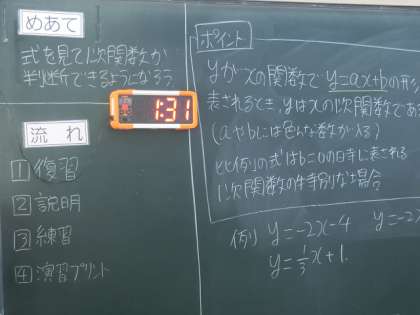 めあて
式を見て1次関数か
判断できるようになろう
流れ
1 復習
2 説明
3 練習
4 演習プリント
1:31
ポイント
yがxの関数で y=ax+bの形
表されるとき、yはxの1次関数であ
(aやbには色んな数が入る)
比例の式はb=0の時に表される
1次関数の特別な場合
例) y=-2x-4 y=-2
y=1/3x+1.